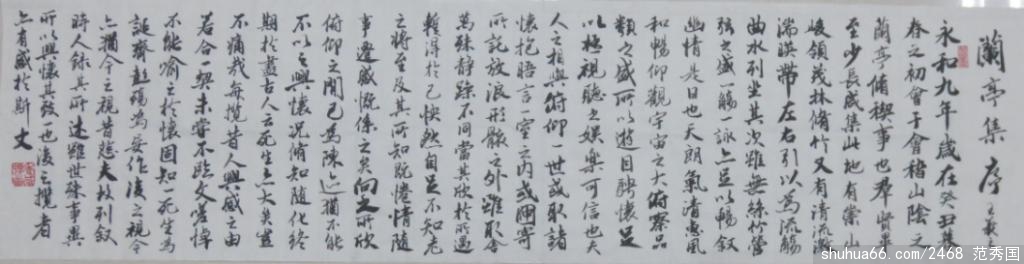 蘭亭集序
王羲之
永和九年歲在癸丑暮
春之初會于會稽山陰之
蘭亭脩稧事也羣賢畢
至少長咸集此地有崇山
峻領茂林脩竹又有清流激
湍暎帶左右引以為流觴
曲水列坐其次雖無絲竹管
弦之盛一觴一詠亦足以暢叙
幽情是日也天朗氣清惠風
和暢仰觀宇宙之大俯察品
類之盛所以遊目騁懷足
以極視聽之娛樂可信也夫
人之相與俯仰一世或取諸
懷抱晤言一室之內或因寄
所託放浪形骸之外雖取舍
萬殊靜躁不同當其欣於所遇
暫得於己快然自足不知老
之將至及其所知既惓情隨
事遷感慨係之矣向之所欣
俯仰之間已為陳迹猶不能
不以之興懷況脩知隨化終
期於盡古人云死生亦大矣豈
不痛哉每攬昔人興感之由
若合一契未嘗不臨文嗟悼
不能喻之於懷固知一死生為
誕齊彭殤為妄作後之視今
亦猶今之視昔悲夫故列叙
時人錄其所述雖世殊事異
所以興懷其致一也後之攬者
亦有感於斯文
shuhua66.com/2468 范秀国